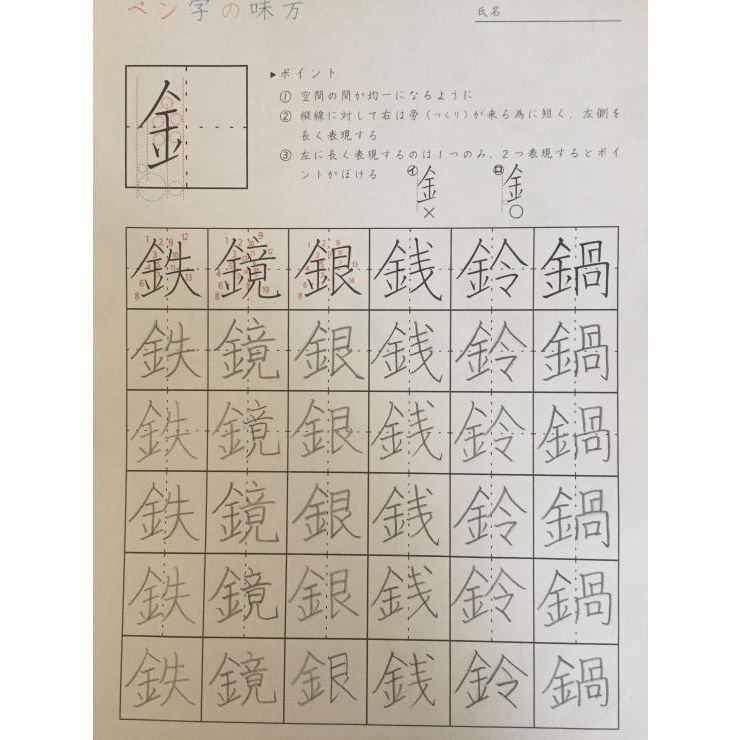 ペン字の味方
氏名
金
▶ポイント
① 空間の間が均一になるように
② 縦線に対して右は旁(つくり)が来る為に短く、左側を
長く表現する
③ 左に長く表現するのは1つのみ、2つ表現するとポイ
ントがぼける
㋑ 金 × ㋺ 金 ○
鉄 鏡 銀 銭 鈴 鍋
鉄 鏡 銀 銭 鈴 鍋
鉄 鏡 銀 銭 鈴 鍋
鉄 鏡 銀 銭 鈴 鍋
鉄 鏡 銀 銭 鈴 鍋
鉄 鏡 銀 銭 鈴 鍋